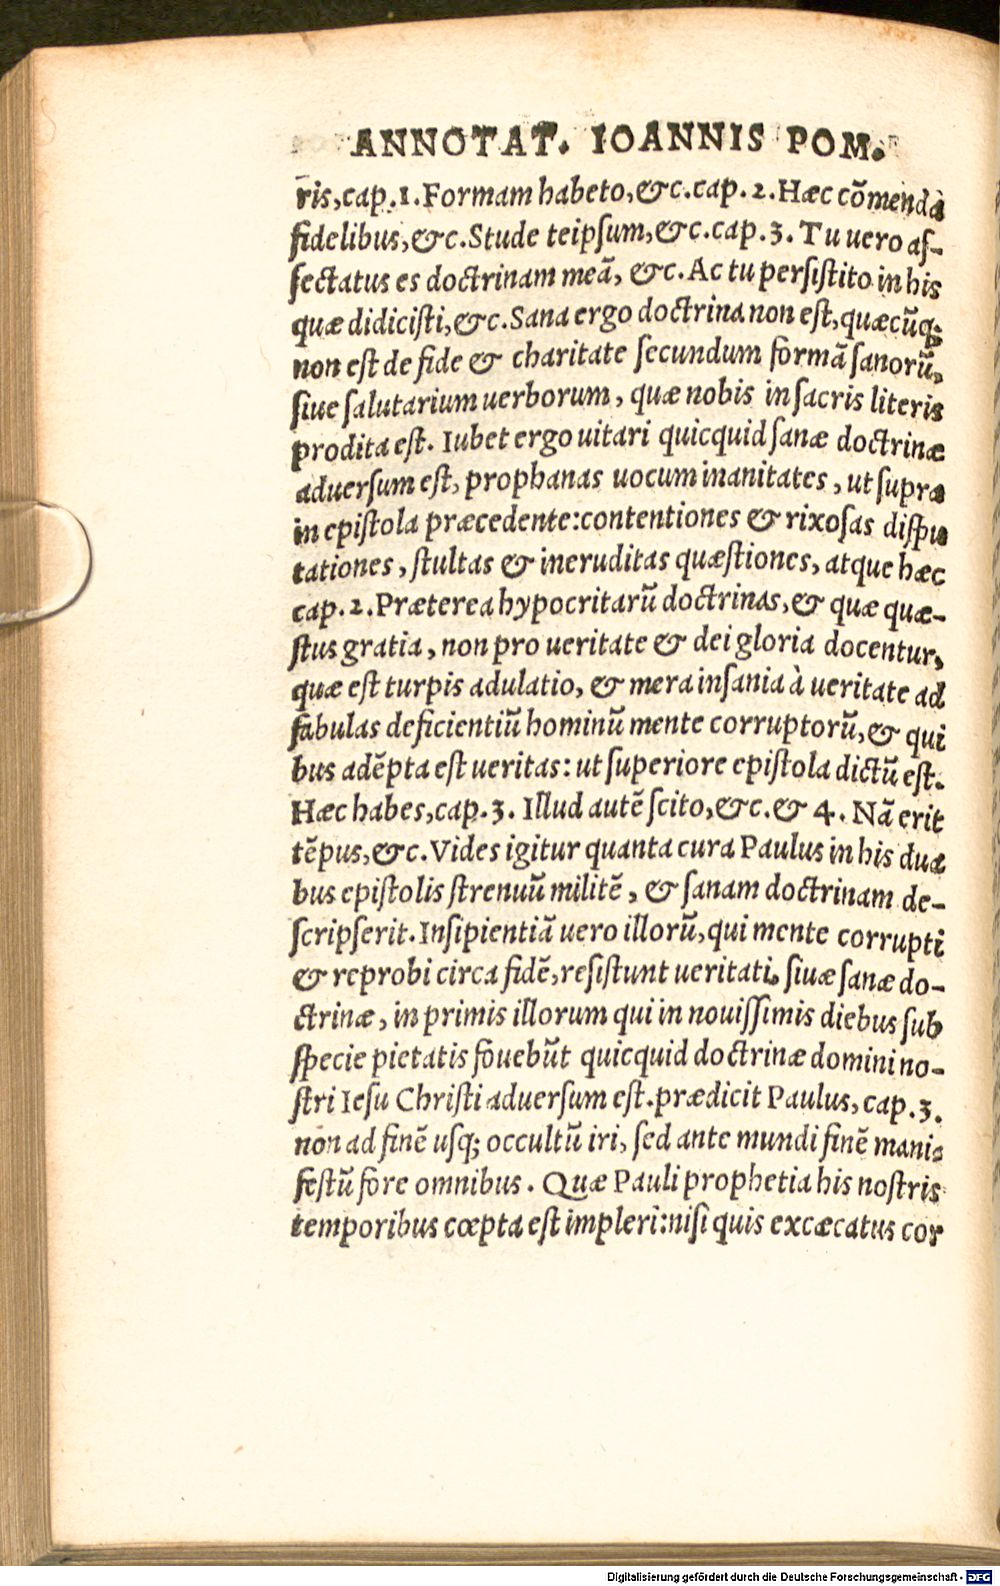 ANNOTAT. IOANNIS POM.
ris, cap.1. Formam habeto, &c. cap. 2. Hæc cõmendà
fidelibus, &c. Stude teipſum, &c. cap. 3. Tu uero aſ-
ſectatus es doctrinam meã, &c. Ac tu perſiſtito in his
quæ didiciſti, &c. Sana ergo doctrina non eſt, quæcũq;
non eſt de fide & charitate ſecundum formã ſanorũ,
ſiue ſalutarium uerborum, quæ nobis in ſacris literis
prodita eſt. Iubet ergo uitari quicquid ſanæ doctrinæ
aduerſum eſt, prophanas uocum inanitates, ut ſupra
in epiſtola præcedente: contentiones & rixoſas diſpu
tationes, ſtultas & ineruditas quæſtiones, atque hæc
cap. 2. Præterea hypocritarũ doctrinas, & quæ quæ-
ſtus gratia, non pro ueritate & dei gloria docentur,
quæ eſt turpis adulatio, & mera inſania à ueritate ad
fabulas deficientiũ hominũ mente corruptorũ, & qui
bus adẽpta eſt ueritas: ut ſuperiore epiſtola dictũ eſt.
Hæc habes, cap. 3. Illud autẽ ſcito, &c. & 4. Nã erit
tẽpus, &c. Vides igitur quanta cura Paulus in his dua
bus epiſtolis ſtrenuũ militẽ, & ſanam doctrinam de-
ſcripſerit. Inſipientiã uero illorũ, qui mente corrupti
& reprobi circa fidẽ, reſiſtunt ueritati, ſiuæ ſanæ do-
ctrinæ, in primis illorum qui in nouiſſimis diebus ſub
ſpecie pietatis fouebũt quicquid doctrinæ domini no-
ſtri Ieſu Chriſti aduerſum eſt. prædicit Paulus, cap. 3.
non ad finẽ uſq; occultũ iri, ſed ante mundi finẽ mani-
feſtũ fore omnibus. Quæ Pauli prophetia his noſtris
temporibus cœpta eſt impleri: niſi quis excæcatus cor
Digitalisierung gefördert durch die Deutsche Forschungsgemeinschaft - DFG